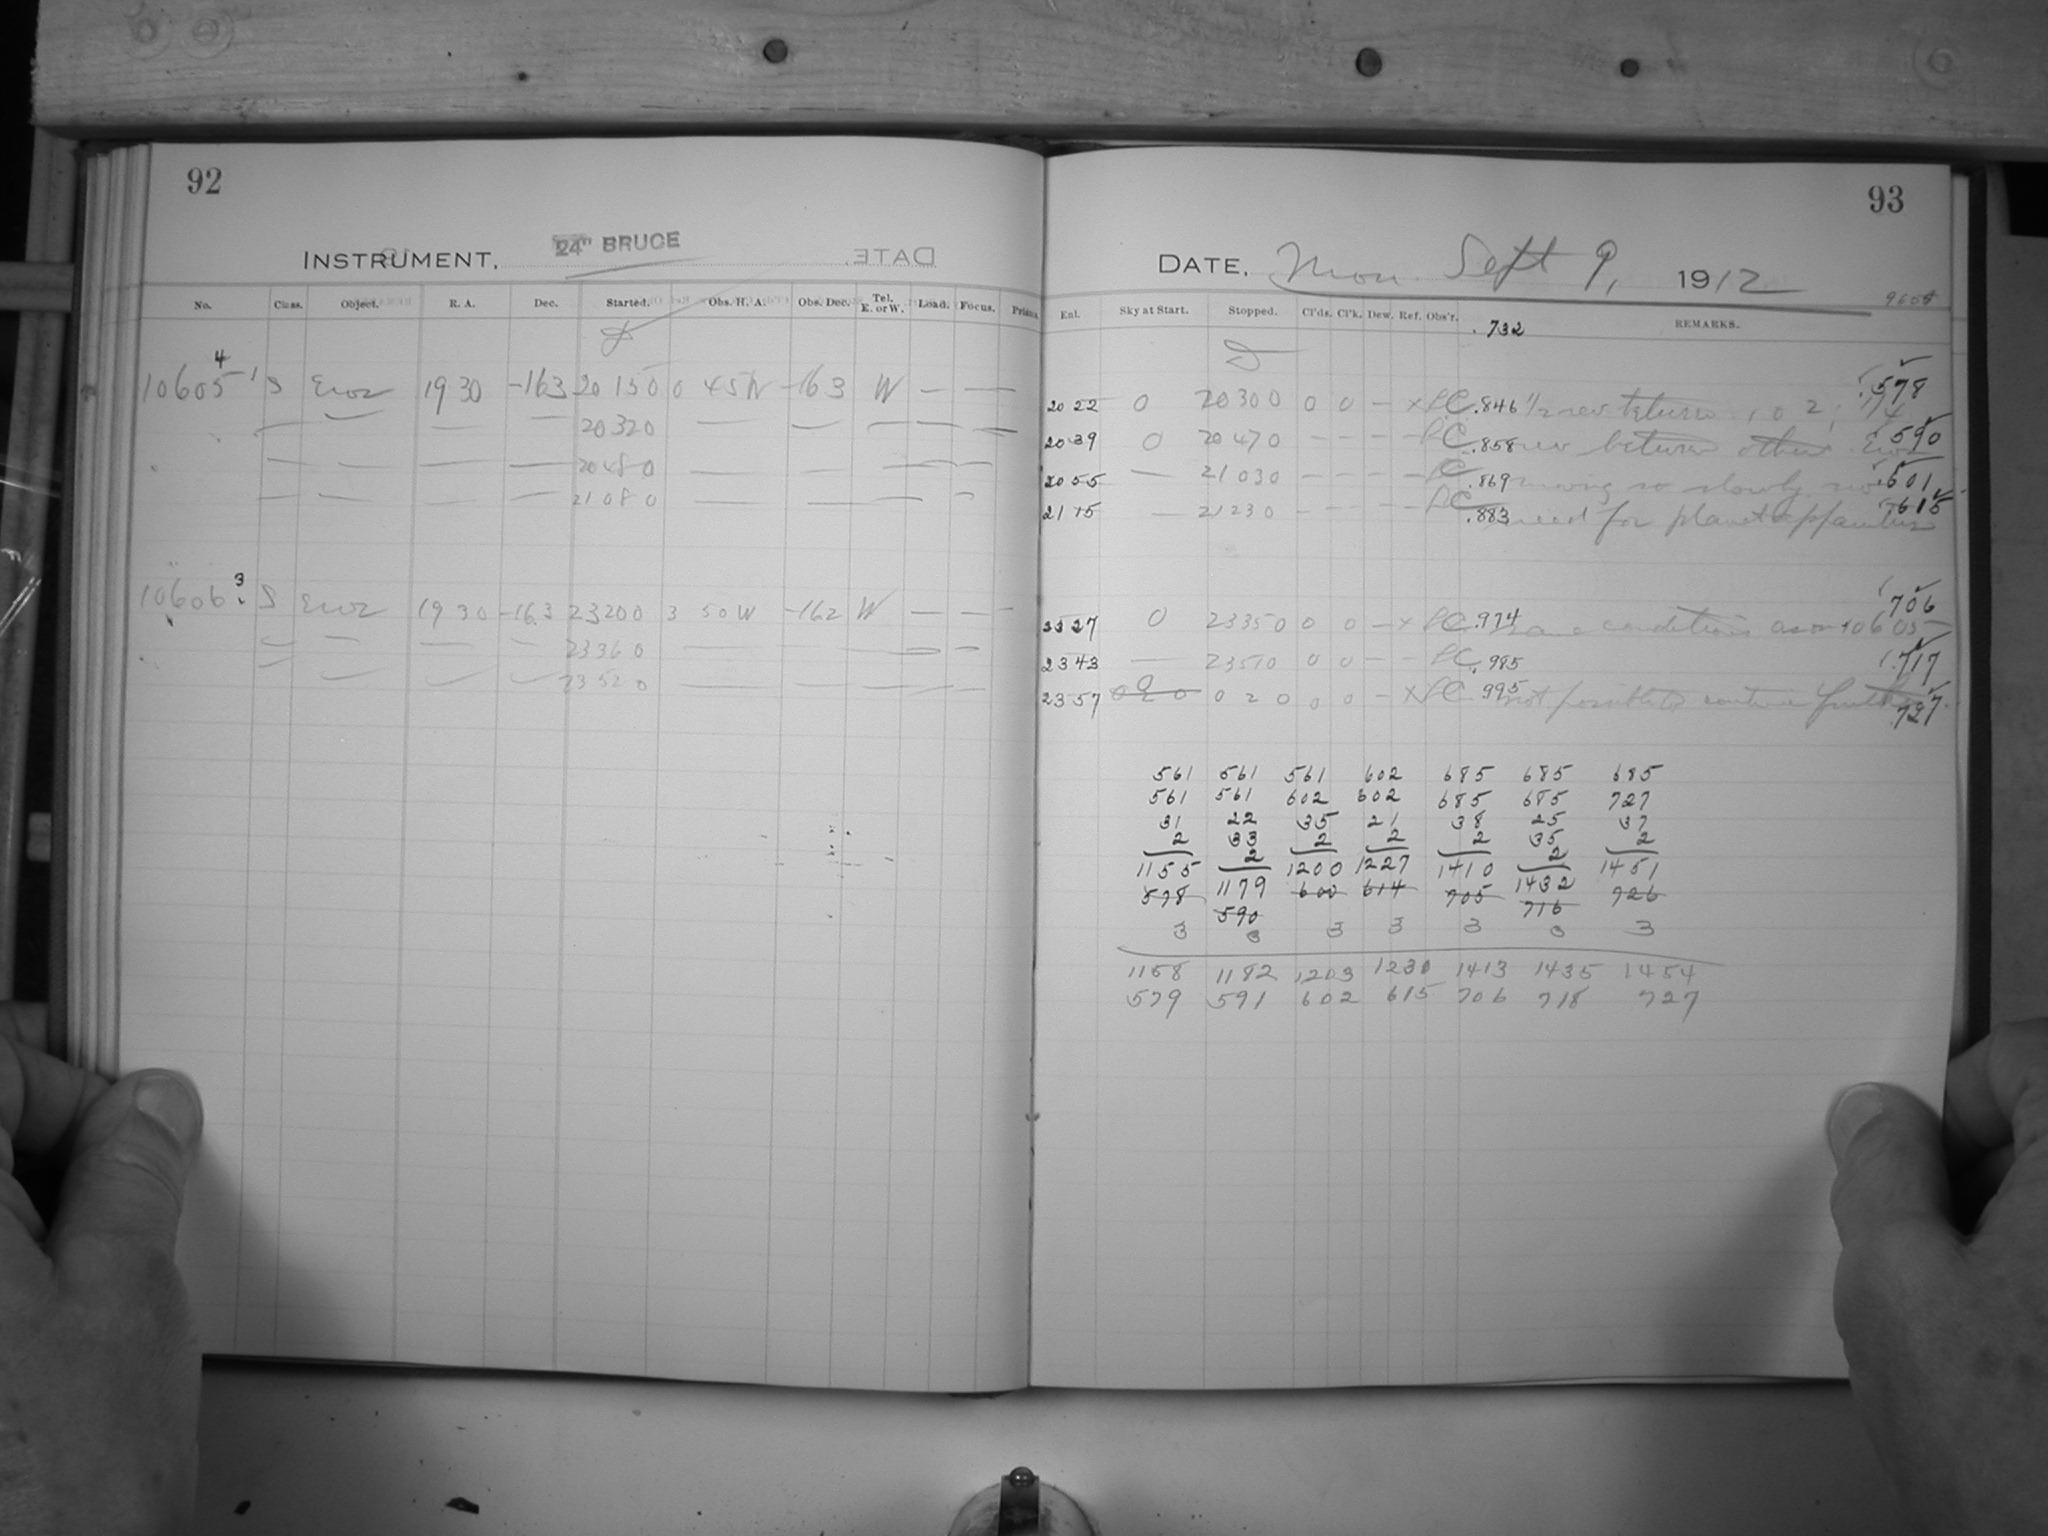 92
INSTRUMENT, 24" BRUCE
No. Class. Object. R. A. Dec. Started. Obs. H. A. Obs. Dec. Tel. E. or W. Load. Focus. Prisms.
4
10605 S Eros 19 30 -16 3 20 15 0 0 45 W -16 3 W — —
— — — — 20 32 0 — — — — —
— — — — 20 48 0 — — — —
— — — — 21 08 0 — — — —
3
10606 S Eros 19 30 -16.3 23 20 0 3 50 W -16 2 W — —
— — — — 23 36 0 — — — —
— — — — 23 52 0 — — — —
93
DATE, Mon Sept 9, 1912
Enl. Sky at Start. Stopped. Cl'ds. Cl'k. Dew. Ref. Obs'r. .732 REMARKS.
20 22 0 20 30 0 0 0 — × .846 1/2 rev. between 1 0 2 ; .578
20 39 0 20 47 0 — — — — .858 rev between other Eros .590
20 55 — 21 03 0 — — — — .869 moving so slowly no .601
21 15 — 21 23 0 — — — — .883 need for planet appearing .615
23 27 0 23 35 0 0 0 — × .974 Same conditions as on 10605 .706
23 43 — 23 51 0 0 0 — — .985 .717
23 57 0 2 0 0 0 — × .995 not possible to continue further .727
561 561 561 602 685 685 685
561 561 602 602 685 685 727
31 22 35 21 38 25 37
2 33 2 2 2 35 2
1155 2 1200 1227 1410 2 1451
578 1179 600 614 705 1432 726
590 716
3 3 3 3 3 3 3
1158 1182 1203 1230 1413 1435 1454
579 591 602 615 706 718 727